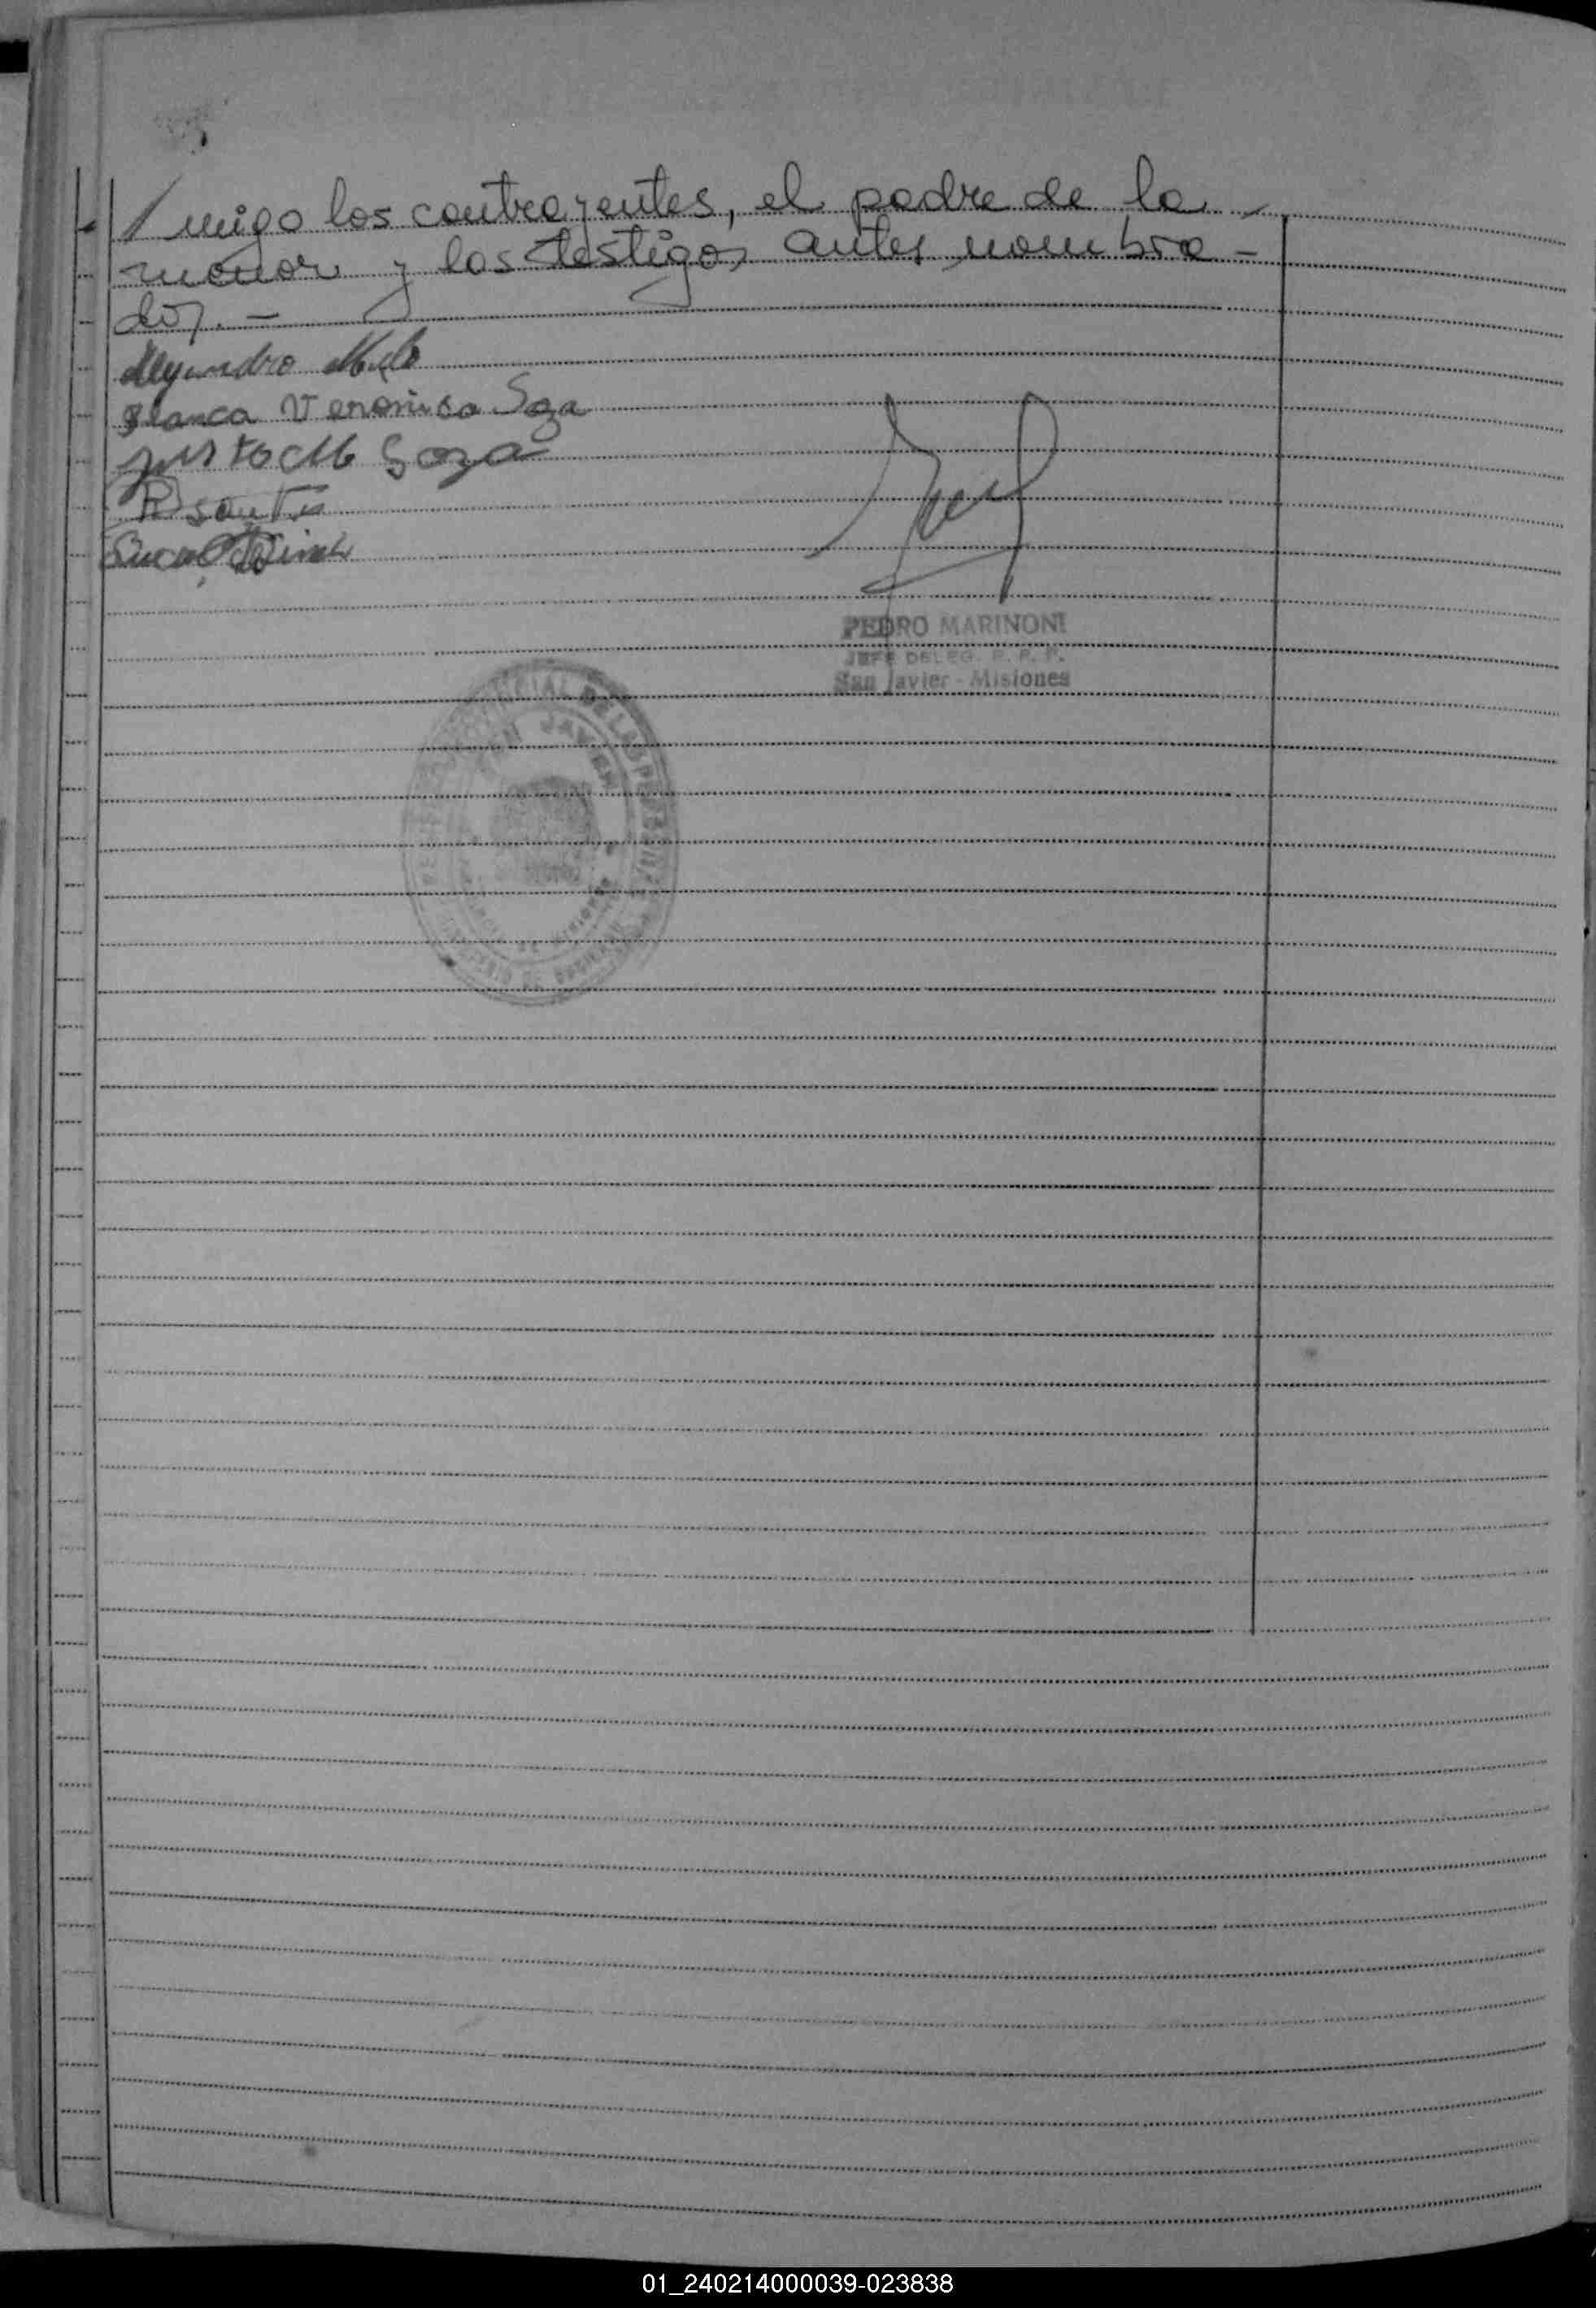 / migo los contrayentes, el padre de la -
menor y los testigos antes nombra -
dos. -
Alejandro
Blanca Veronica Soza
Justo M Soza
PEDRO MARINONI
JEFE DELEG. R. P. P.
San Javier - Misiones
SAN JAVIER
01_240214000039-023838